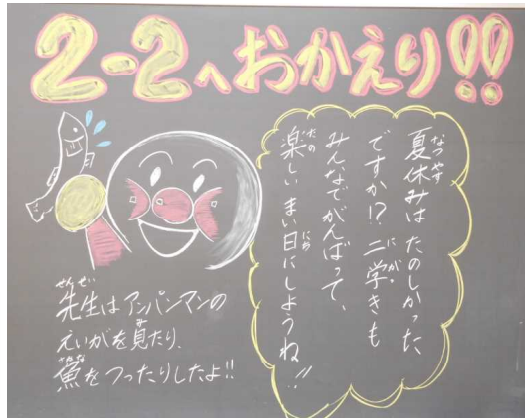 2-2へおかえり!!
夏休みは たのしかった
ですか!? 二学きも
みんなでがんばって、
楽しい まい日にしようね!!
先生はアンパンマンの
えいがを見たり、
魚をつったりしたよ!!